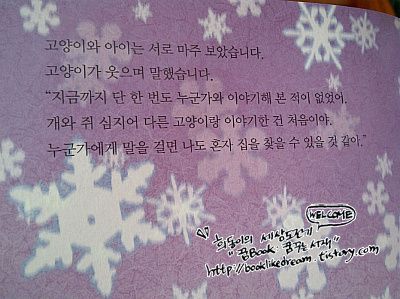 고양이와 아이는 서로 마주 보았습니다.
고양이가 웃으며 말했습니다.
“지금까지 단 한 번도 누군가와 이야기해 본 적이 없었어.
개와 쥐 심지어 다른 고양이랑 이야기한 건 처음이야.
누군가에게 말을 걸면 나도 혼자 집을 찾을 수 있을 것 같아.”
WELCOME
희동이의 세상도전기
"꿈Book 꿈꾸는 서재"
http://booklikedream.tistory.com